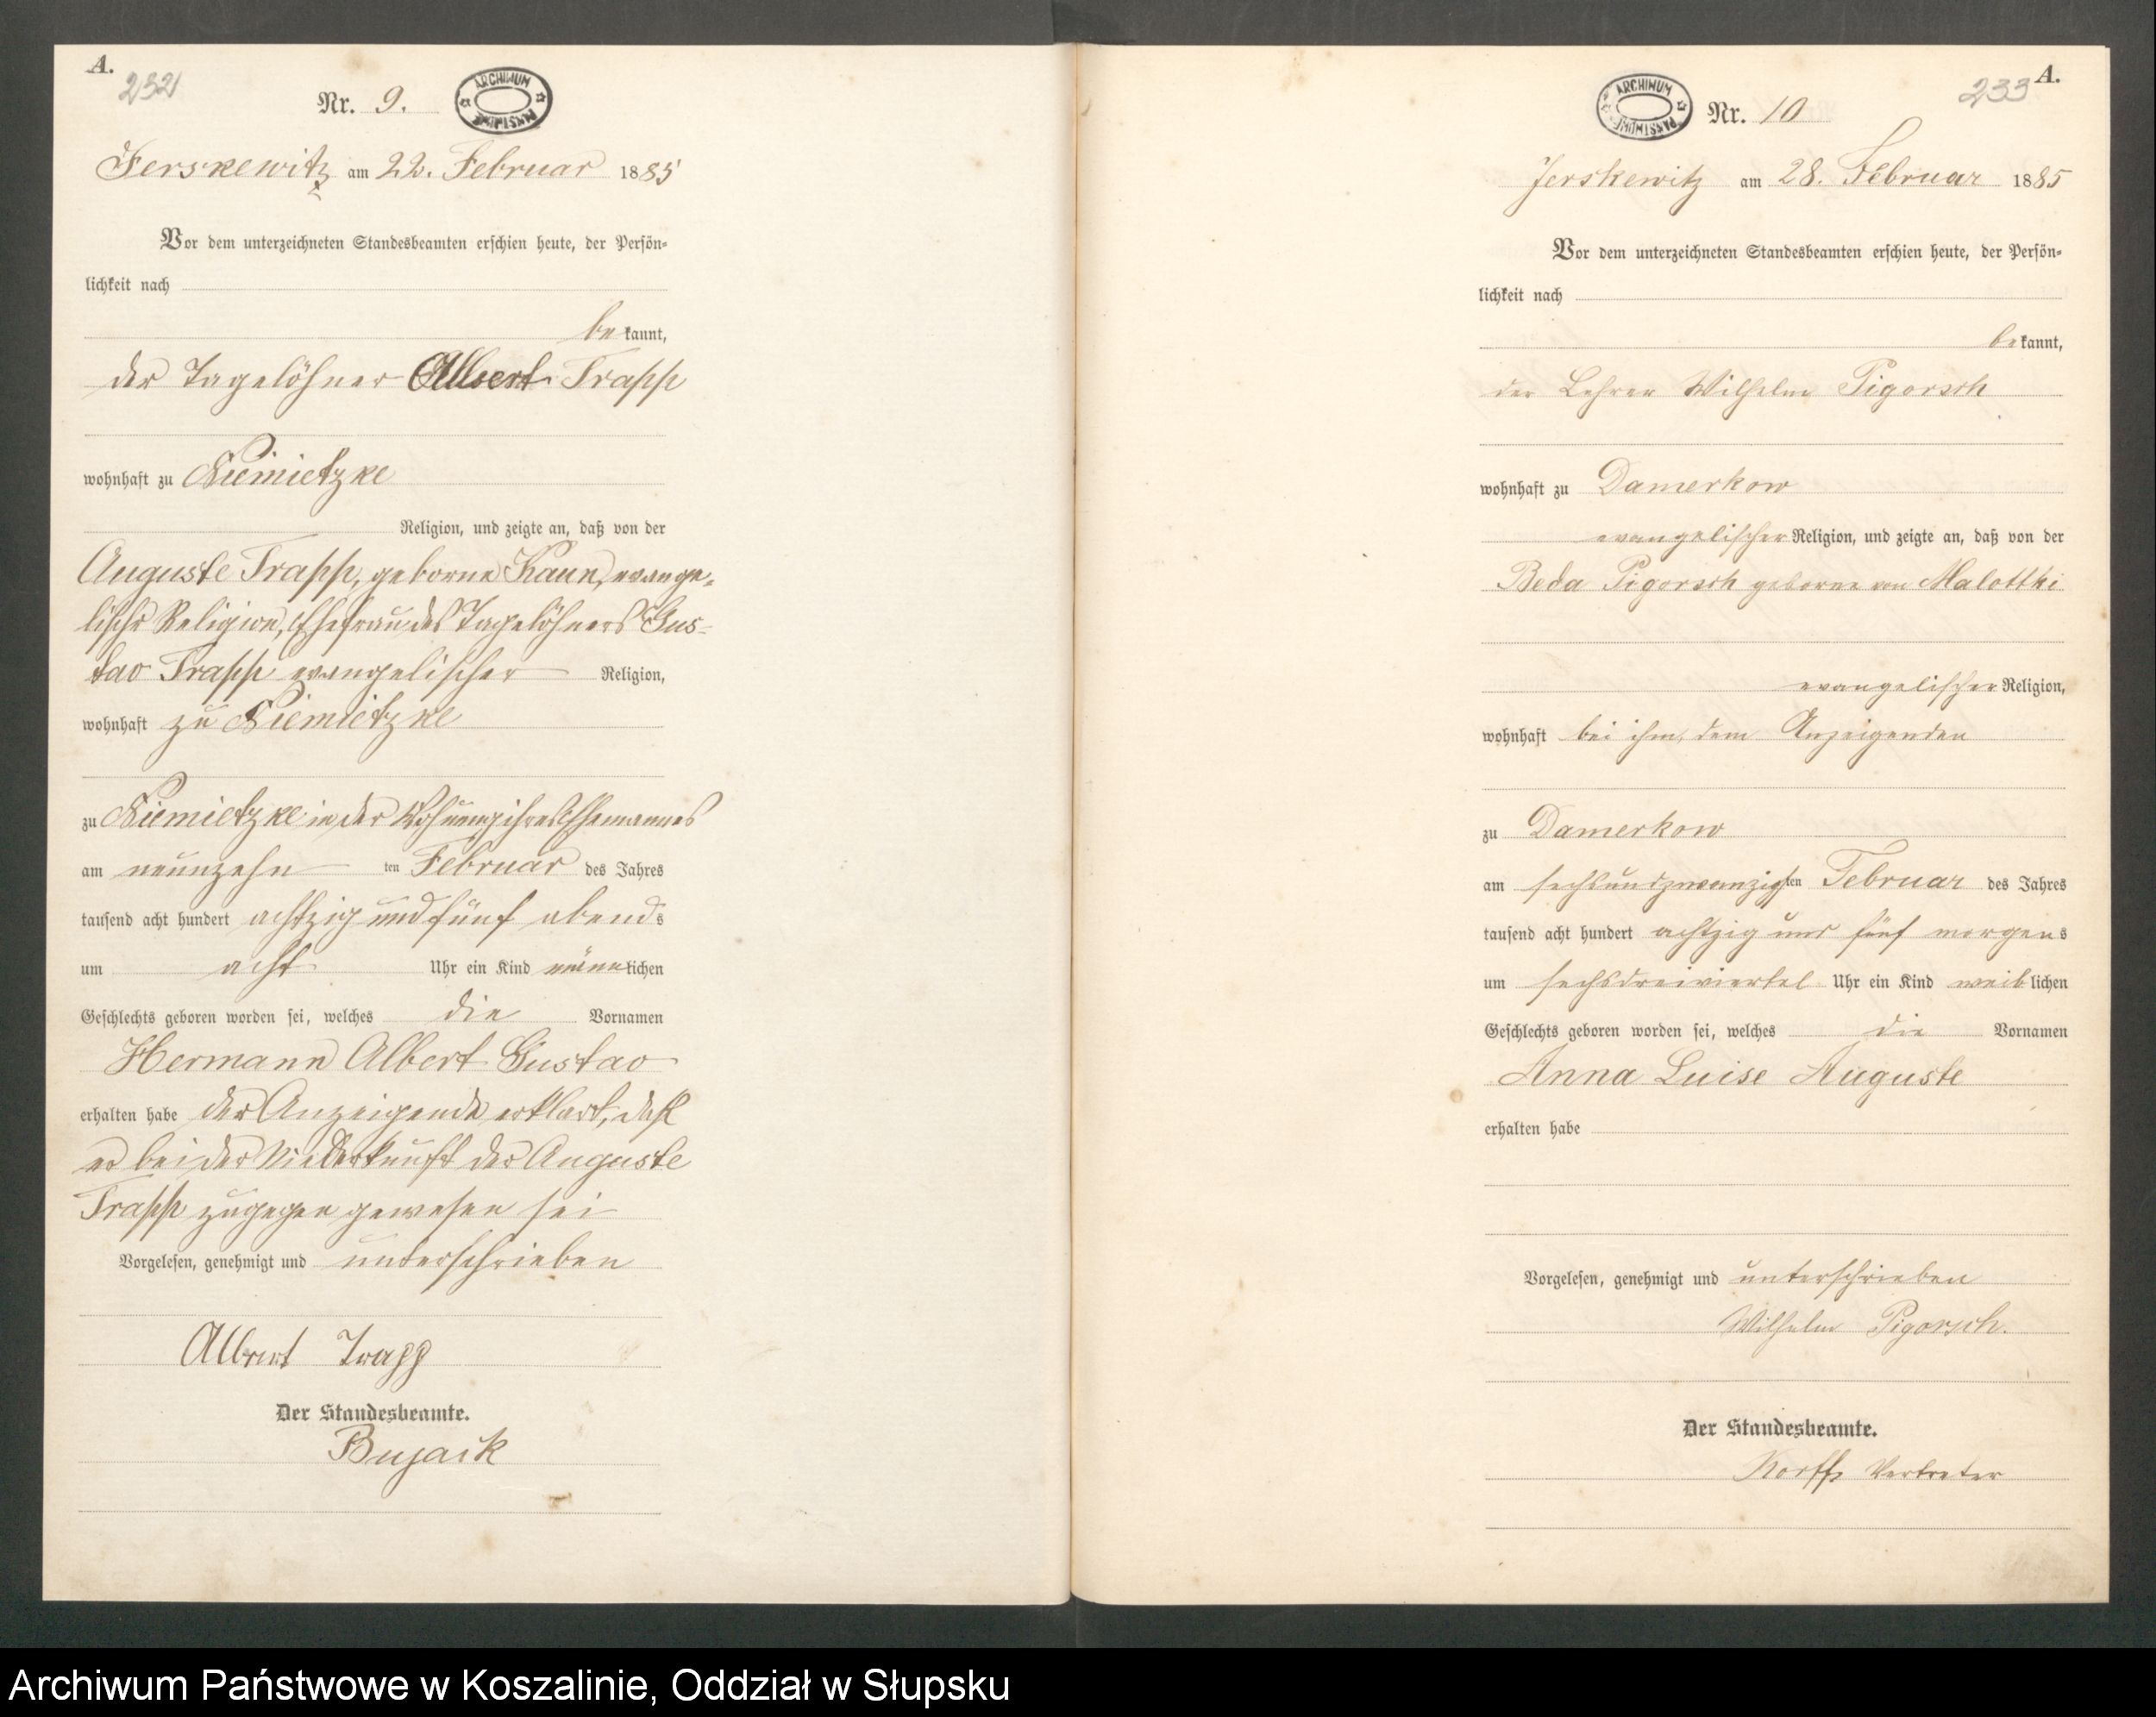 A.
232
Nr. 9.
ARCHIWUM PAŃSTWOWE
Jerskewitz am 22. Februar 1885
Vor dem unterzeichneten Standesbeamten erschien heute, der Persön-
lichkeit nach
be kannt,
der Tagelöhner Albert Trapp
wohnhaft zu Niemietzke
Religion, und zeigte an, daß von der
Auguste Trapp, geborne Kaun, evange-
lischer Religion, Ehefrau des Tagelöhners Gus-
tav Trapp evangelischer Religion,
wohnhaft zu Niemietzke
zu Niemietzke in der Wohnung ihres Ehemannes
am neunzehn ten Februar des Jahres
tausend acht hundert achtzig und fünf abends
um acht Uhr ein Kind männlichen
Geschlechts geboren worden sei, welches die Vornamen
Hermann Albert Gustav
erhalten habe der Anzeigende erklärt, daß
er bei der Niederkunft der Auguste
Trapp zugegen gewesen sei
Vorgelesen, genehmigt und unterschrieben
Albert Trapp
Der Standesbeamte.
Bujack
A.
233
ARCHIWUM PAŃSTWOWE
Nr. 10
Jerskewitz am 28. Februar 1885
Vor dem unterzeichneten Standesbeamten erschien heute, der Persön-
lichkeit nach
be kannt,
der Lehrer Wilhelm Pigorsch
wohnhaft zu Damerkow
evangelischer Religion, und zeigte an, daß von der
Beda Pigorsch geborne von Malottki
evangelischer Religion,
wohnhaft bei ihm, dem Anzeigenden
zu Damerkow
am sechsundzwanzigsten Februar des Jahres
tausend acht hundert achtzig und fünf morgens
um sechsdreiviertel Uhr ein Kind weiblichen
Geschlechts geboren worden sei, welches die Vornamen
Anna Luise Auguste
erhalten habe
Vorgelesen, genehmigt und unterschrieben
Wilhelm Pigorsch.
Der Standesbeamte.
Vertreter
Archiwum Państwowe w Koszalinie, Oddział w Słupsku